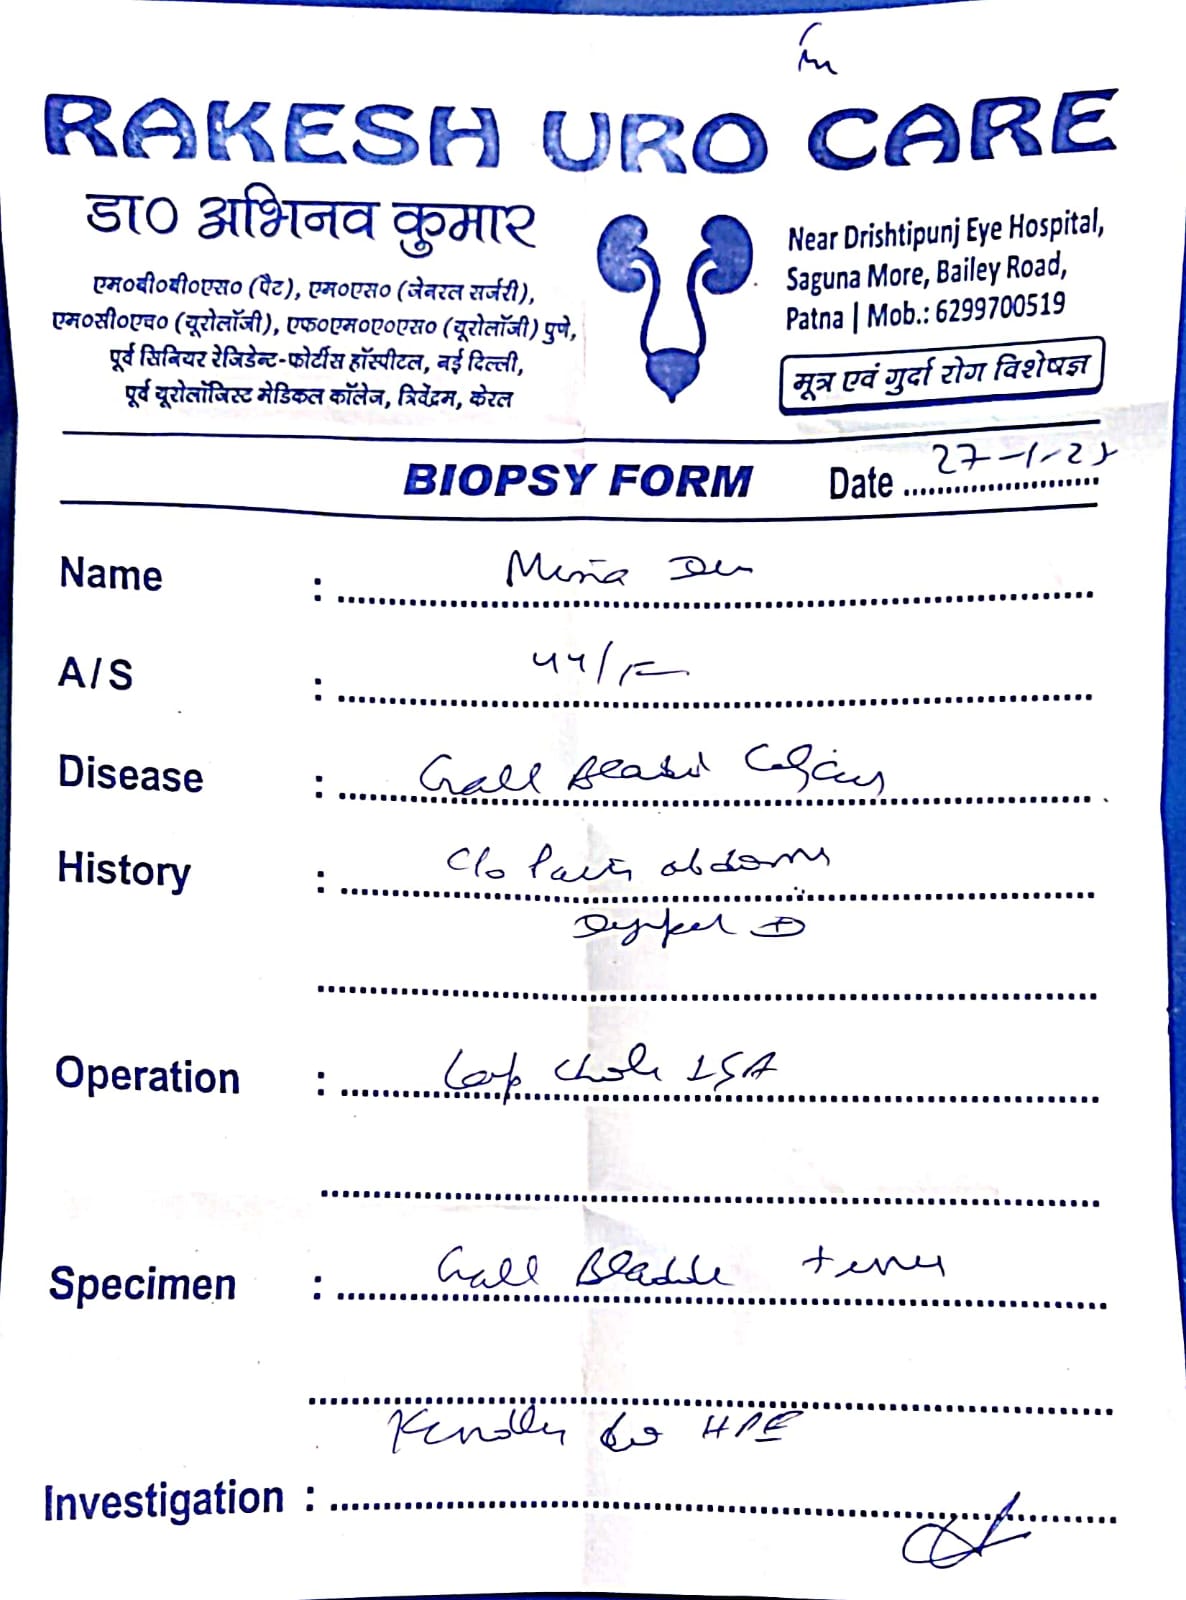 RAKESH URO CARE
डा० अभिनव कुमार
एम०बी०बी०एस० (पैट), एम०एस० (जेनरल सर्जरी),
एम०सी०एच० (यूरोलॉजी), एफ०एम०ए०एस० (यूरोलॉजी) पुणे,
पूर्व सिनियर रेजिडेन्ट-फोर्टीस हॉस्पीटल, नई दिल्ली,
पूर्व यूरोलॉजिस्ट मेडिकल कॉलेज, त्रिवेंद्रम, केरल
Near Drishtipunj Eye Hospital,
Saguna More, Bailey Road,
Patna | Mob.: 6299700519
मूत्र एवं गुर्दा रोग विशेषज्ञ
BIOPSY FORM Date 27-1-25
Name :
A/S : 44/F
Disease : Gall Bladder
History : C/o Pain abdomen
Operation : Lap chole
Specimen : Gall Bladder
Kindly do HPE
Investigation :